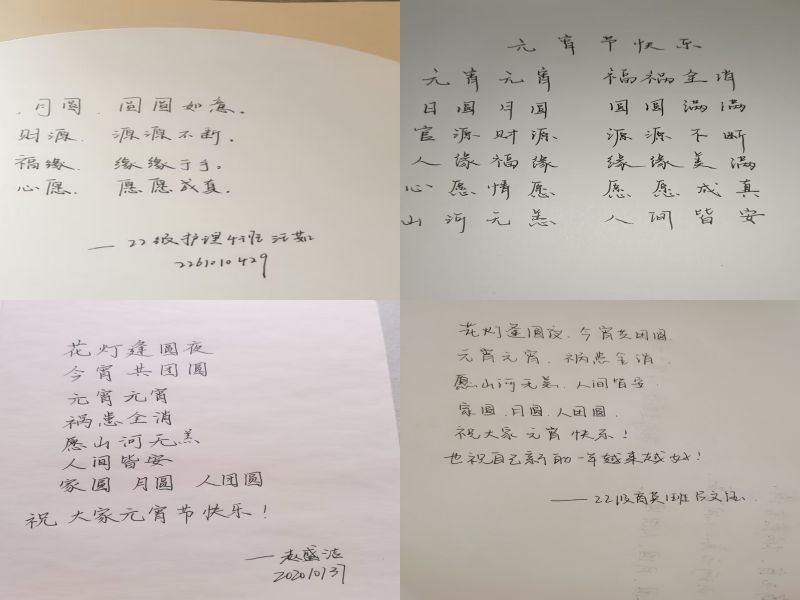 月圆. 圆圆如意.
财源. 源源不断.
福缘. 缘缘于手。
心愿. 愿愿成真.
— 22级护理4班 汪茹
2261010429
元宵节快乐
元宵元宵 福祸全消
日圆月圆 圆圆满满
官源财源 源源不断
人缘福缘 缘缘美满
心愿情愿 愿愿成真
山河无恙 人间皆安
花灯逢圆夜
今宵共团圆
元宵元宵
祸患全消
愿山河无恙
人间皆安
家圆 月圆 人团圆
祝大家元宵节快乐!
— 赵盛洁
花灯逢圆夜. 今宵共团圆.
元宵元宵. 祸患全消.
愿山河无恙. 人间皆安.
家圆.月圆.人团圆.
祝大家元宵快乐!
也祝自己新的一年越来越好!
—— 22级商英1班